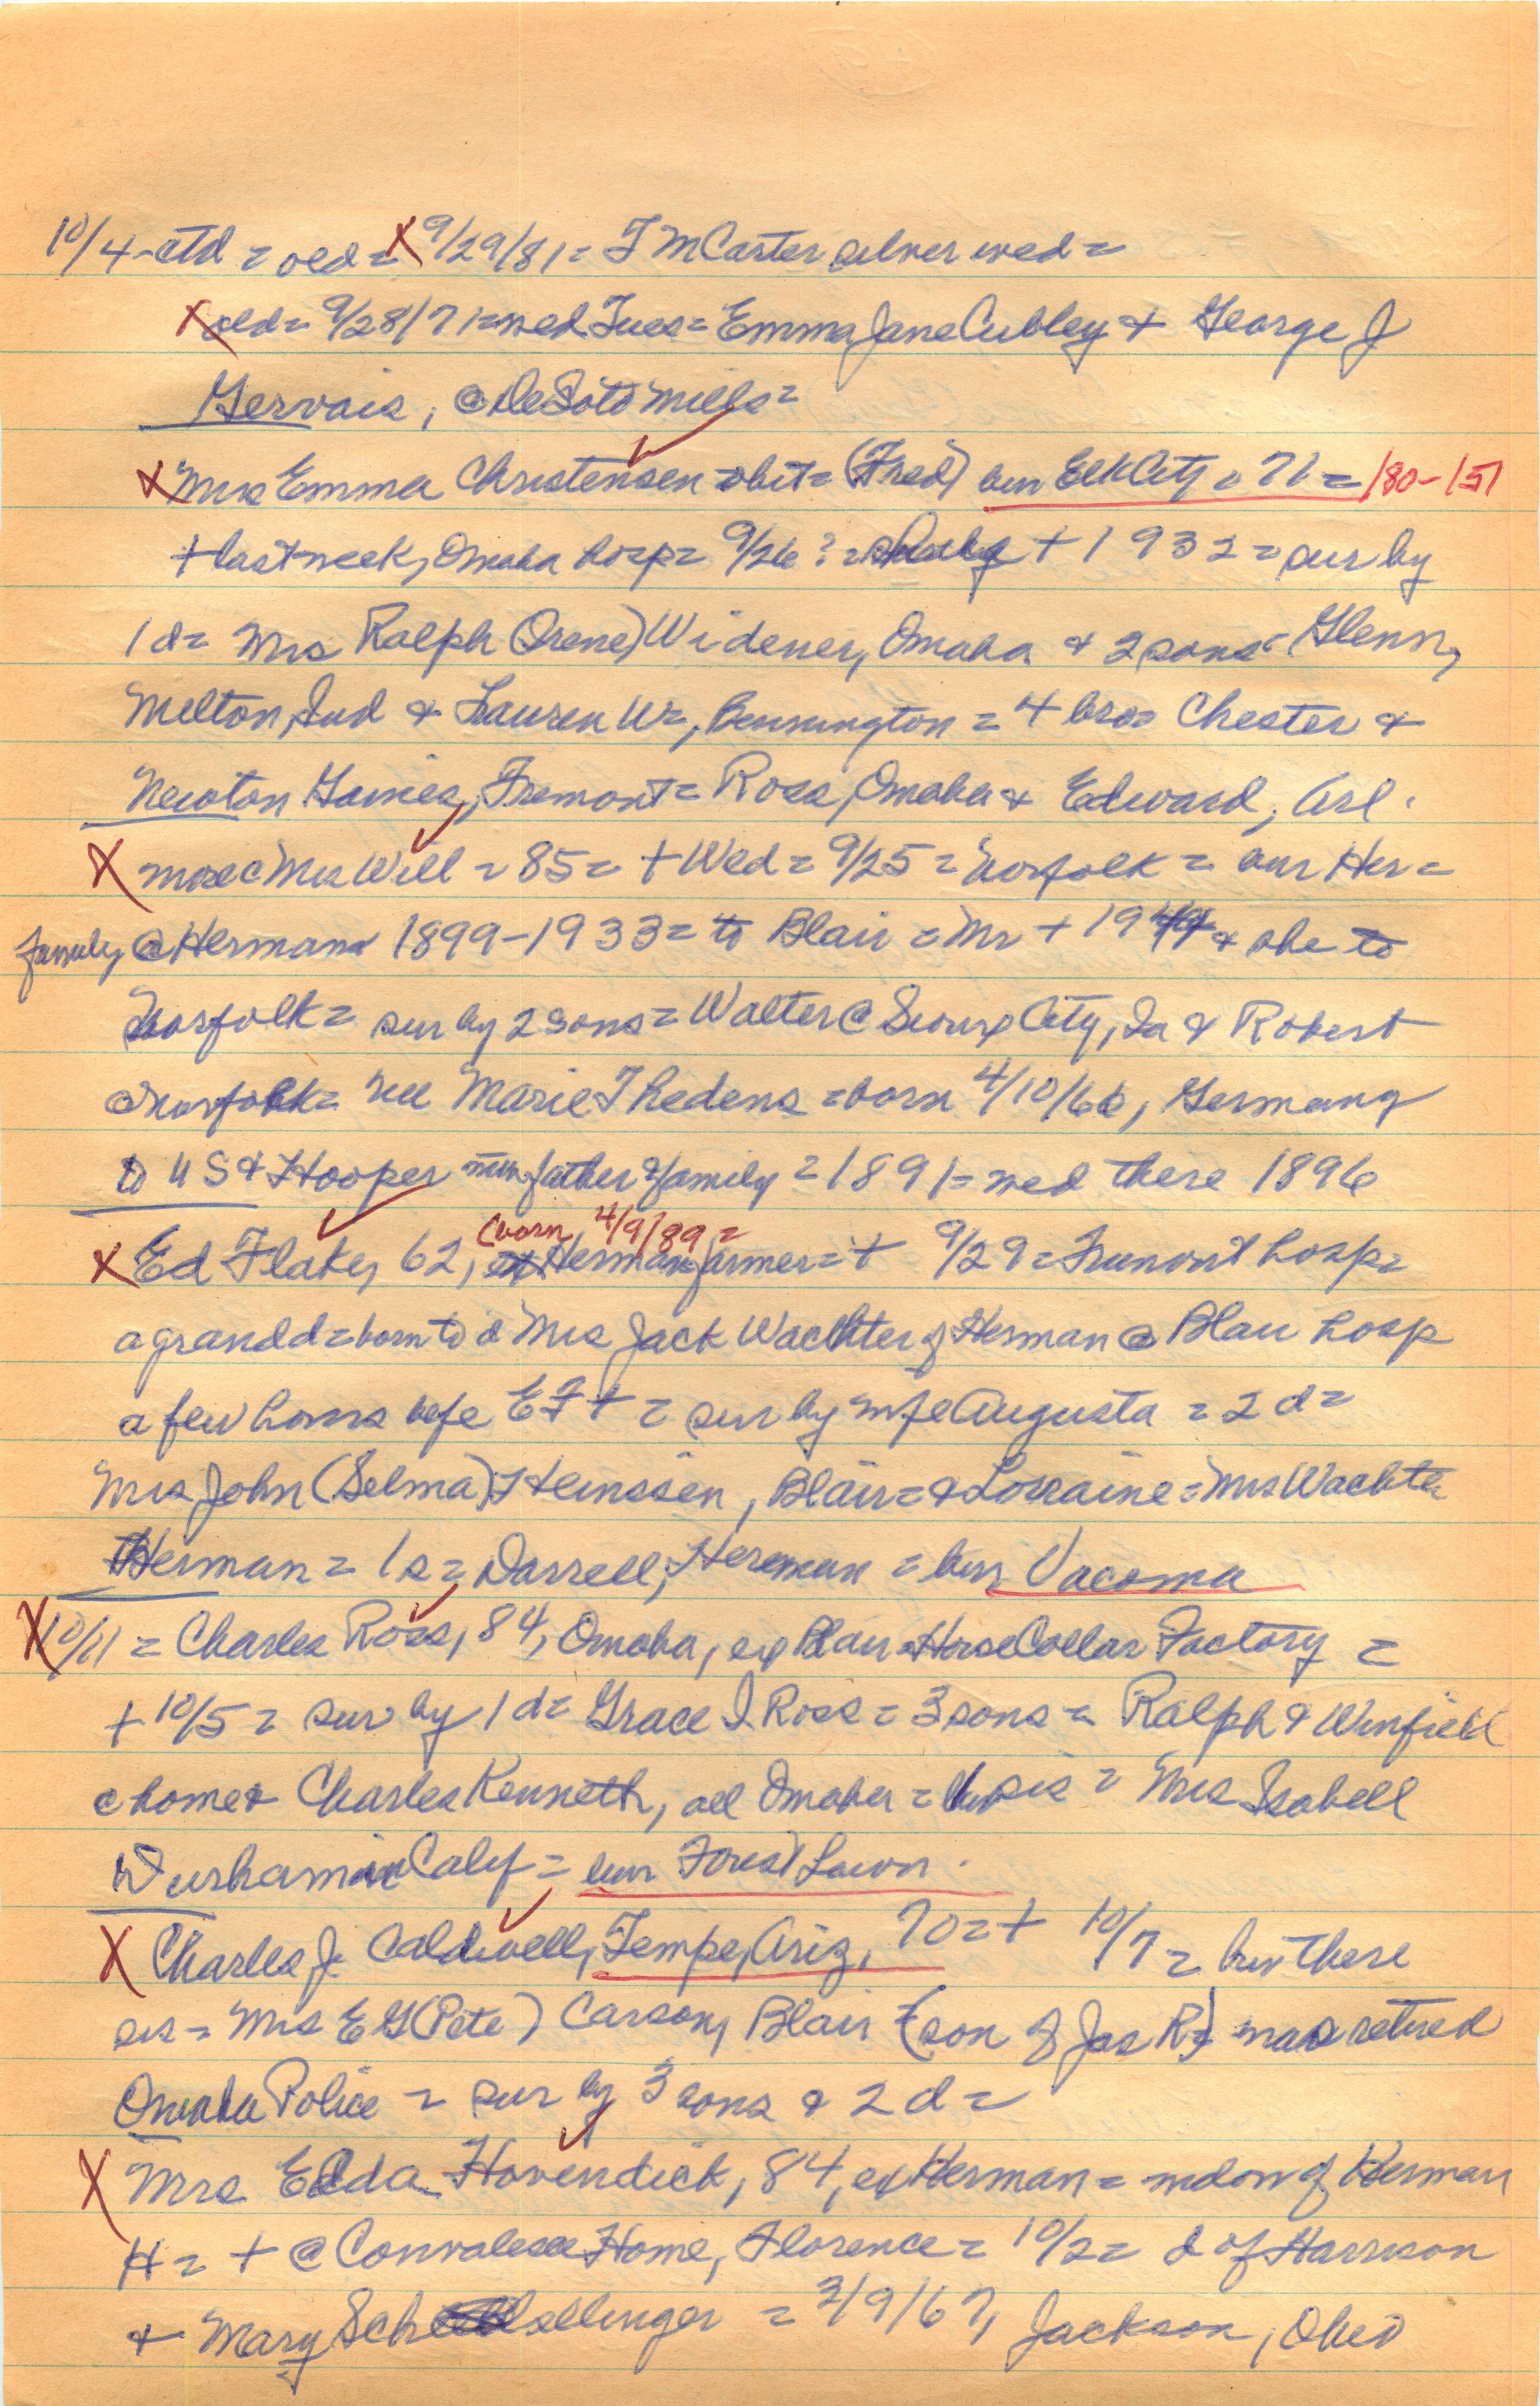 10/4-ctd = old = X 9/29/81 = T M Carter silver wed =
X old = 9/28/71 = wed Tues = Emma Jane Cubley + George J
Gervais, @ DeSoto Mills =
X Mrs Emma Christensen = obit = (Fred) bur Elk City = 71 = 180-151
+ last week, Omaha hosp = 9/26? = + 1932 = sur by
1 d = Mrs Ralph (Irene) Widener, Omaha & 2 sons = Glenn,
Melton, Ind & Lauren W, Bennington = 4 bros Chester &
Newton Gaines, Fremont = Ross, Omaha & Edward, Arl.
X Mrs Will = 85 = + Wed = 9/25 = Norfolk = bur Her =
family @ Herman 1899-1933 = to Blair = Mr + 1944 & she to
Norfolk = sur by 2 sons = Walter @ Sioux City, Ia & Robert
@ Norfolk = nee Marie Thedens = born 4/10/66, Germany
to U S & Hooper father & family = 1891 = wed there 1896
X Ed Flake, 62, (born 4/9/89 = ex Herman farmer = + 9/29 = Fremont hosp =
a grand d = born to d Mrs Jack Wachter of Herman @ Blair hosp
a few hours befe E F + = sur by wife Augusta = 2 d =
Mrs John (Selma) Heinssen, Blair = & Lorraine = Mrs Wachter
Herman = 1 s = Darrell, Herman = bur Vacoma
X 10/11 = Charles Ross, 84, Omaha, ex Blair Horse Collar Factory =
+ 10/5 = sur by 1 d = Grace I Ross = 3 sons = Ralph & Winfield
@ home & Charles Kenneth, all Omaha = sis = Mrs Isabell
Durham in Calif = bur Forest Lawn.
X Charles J. Caldwell, Tempe, Ariz, 70 = + 10/7 = bur there
sis = Mrs E G (Pete) Carson, Blair = (son of Jas R) was retired
Omaha Police = sur by 3 sons & 2 d =
X Mrs Edda Hovendick, 84, ex Herman = widow of Herman
H = + @ Home, Florence = 10/2 = d of Harrison
& Mary = 2/9/67, Jackson, Ohio